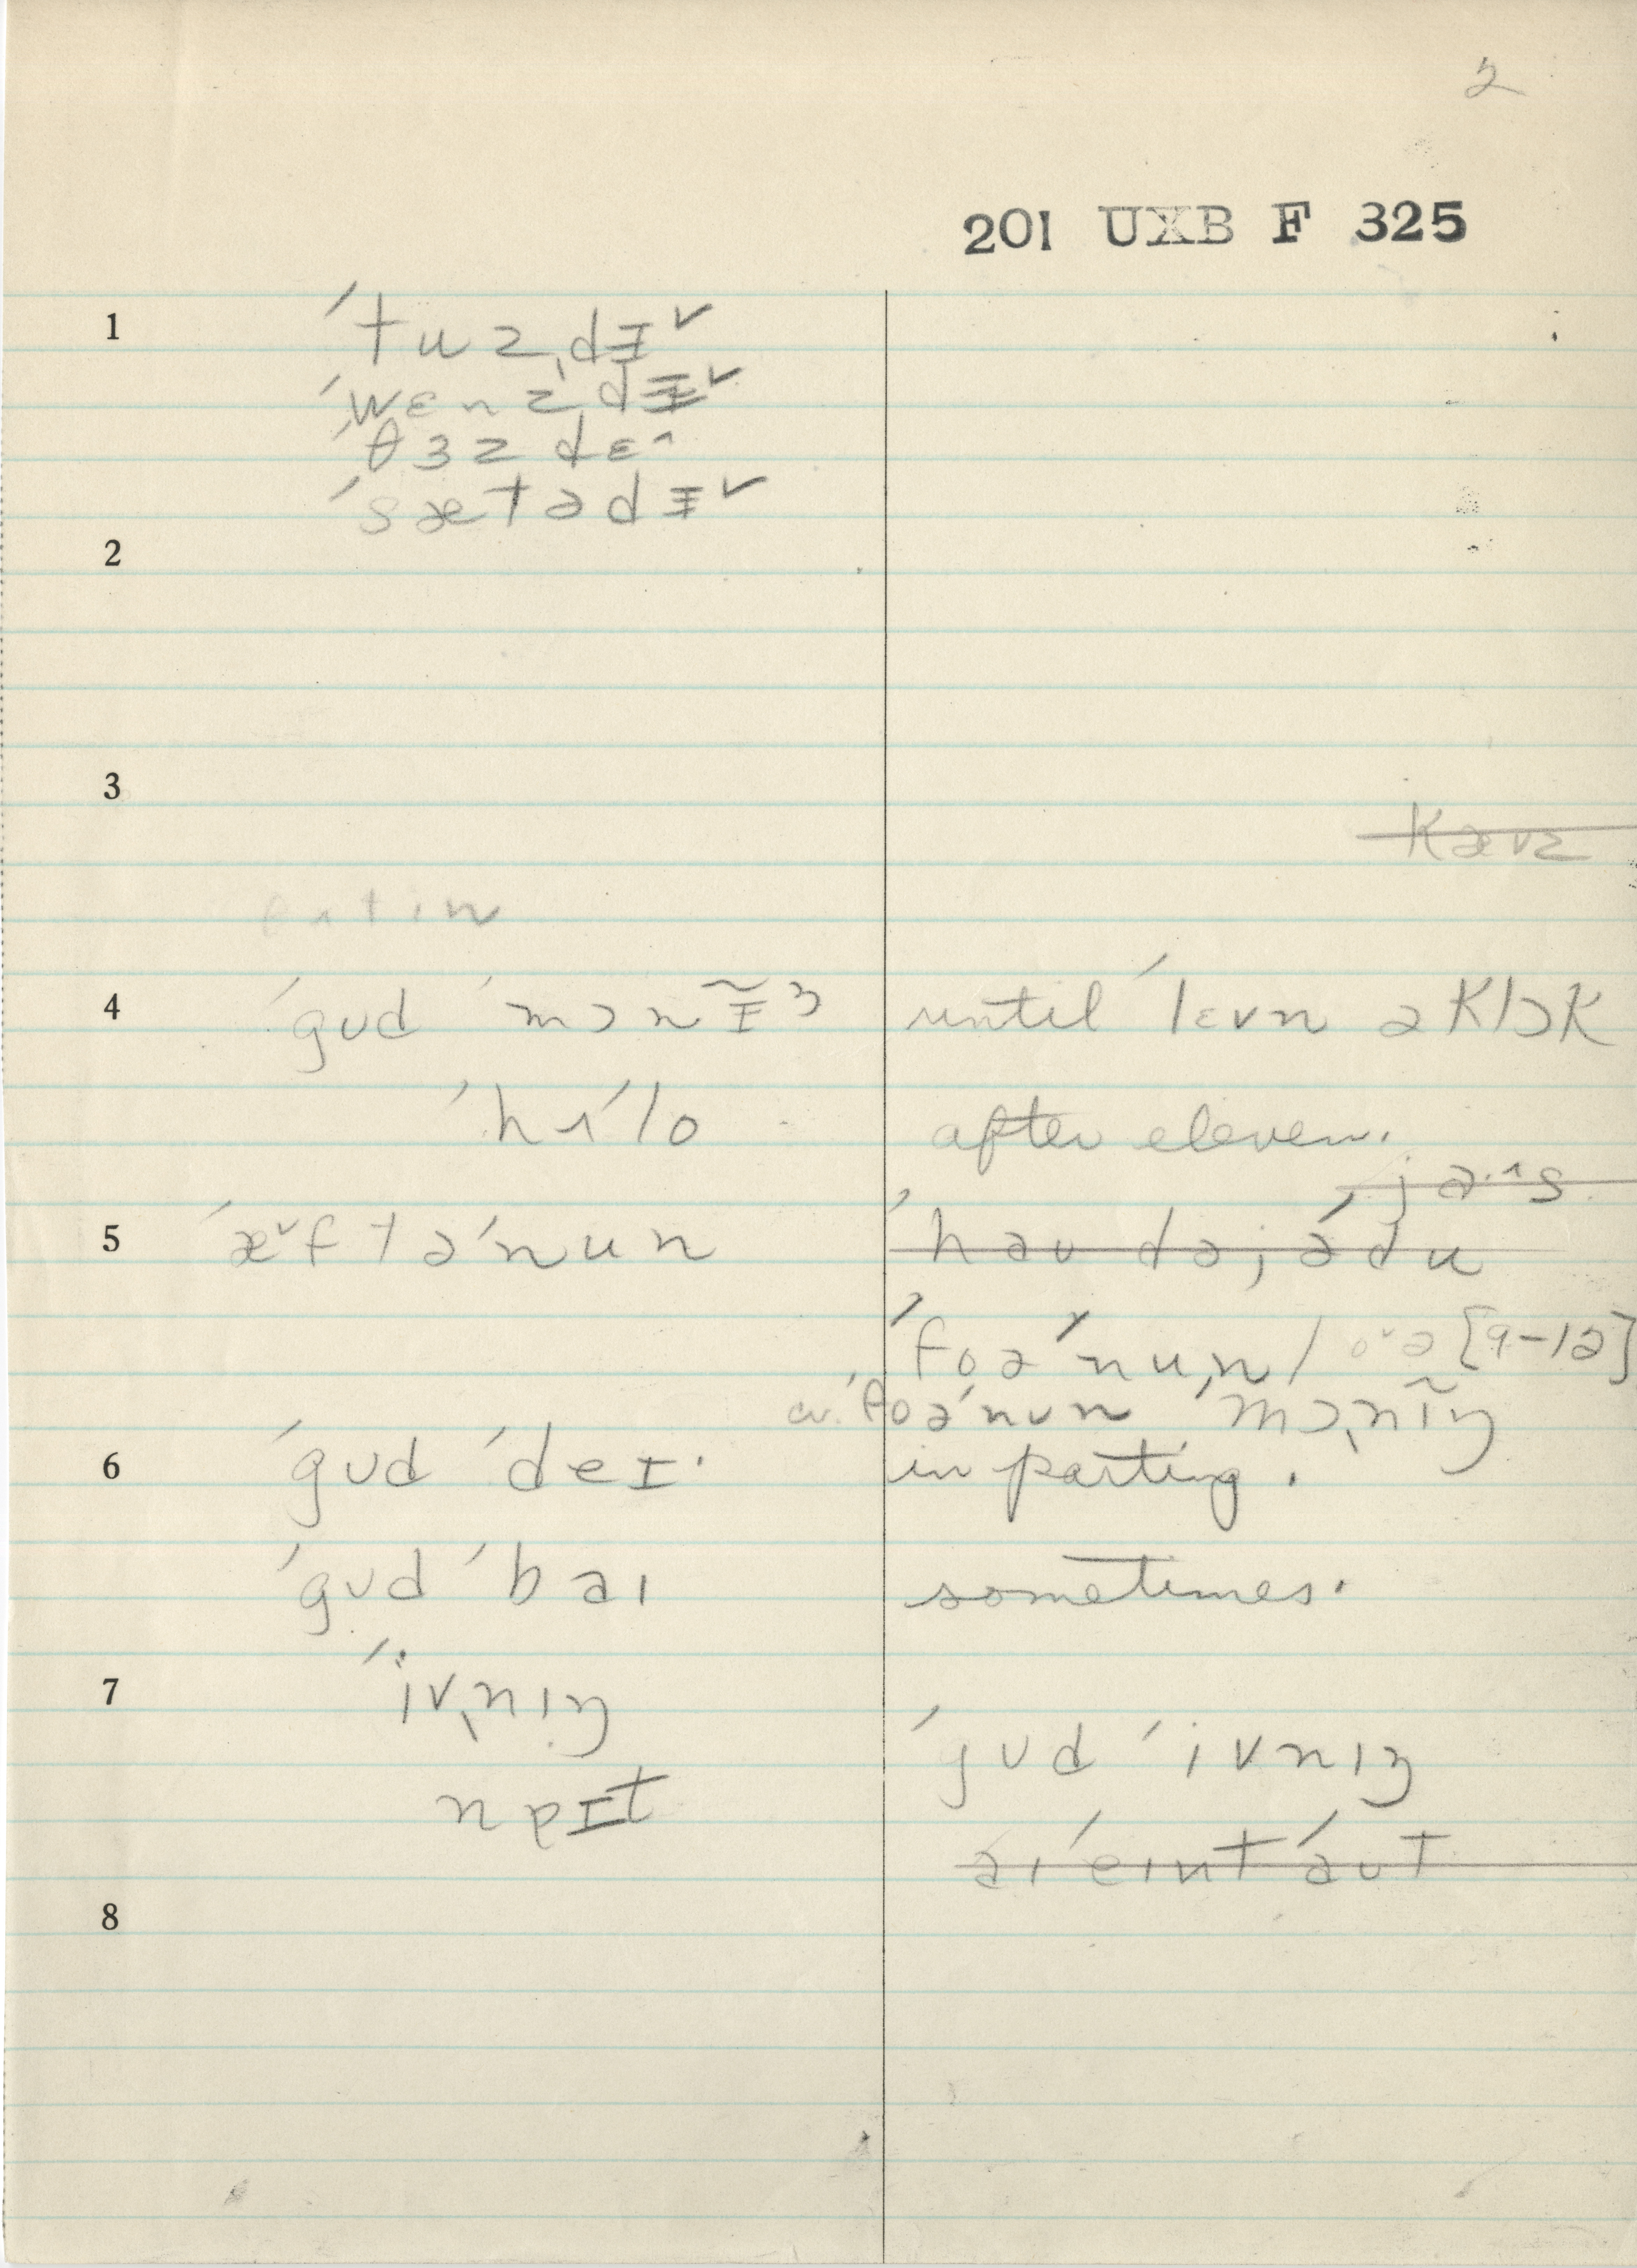 2
201 UXB F 325
1 ˈtuzˌdɪ̵ˇ
ˈwɛnzˌdɪ̵ˇ
ˈθɜzdɛ^
ˈsætədɪ̵ˇ
2
3
kæʋz
4 ˈgʊd ˈmɔnɪ̵̃ŋ until ˈlɛvn əklɔk
ˈhʌˈlo after eleven.
jɑ·^s
5 ˈæˇftəˈnun ˈhaʊ dəjəˈdu
ˈfoəˈnuˌn / oˇə [9-12]
cv. ˈfoəˈnun ˈmɔˌnɪ̃ŋ
6 ˈgʊd ˈdeɪ· in parting.
ˈgʊd ˈbaɪ sometimes.
7 ˈivˌnɪŋ
ˈgʊd ˈivnɪŋ
aɪˈeɪntˈaʊt
8